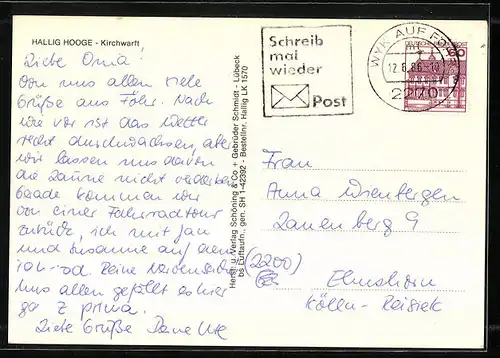 HALLIG HOOGE - Kirchwarft
Liebe Oma!
Von uns allen viele
Grüße aus Föhr. Nach
wie vor ist das Wetter
recht durchwachsen, aber
wir lassen uns davon
die Laune nicht verderben
Gerade kommen wir
von einer Fahrradtour
zurück, ich mit Jan
und Susanne auf dem
uns allen gefällt es hier
z prima.
Liebe Grüße Deine Ute
Herst. u. Verlag Schöning & Co + Gebrüder Schmidt - Lübeck
bs Luftaufn., gen. SH 1-42392 - Bestellnr. Hallig LK 1570
Schreib
mal
wieder
Post
WYK AUF FÖHR
12.6.86
2270
60
Frau
Anna
9
(2200)
Elmshorn
Kölln-Reisiek